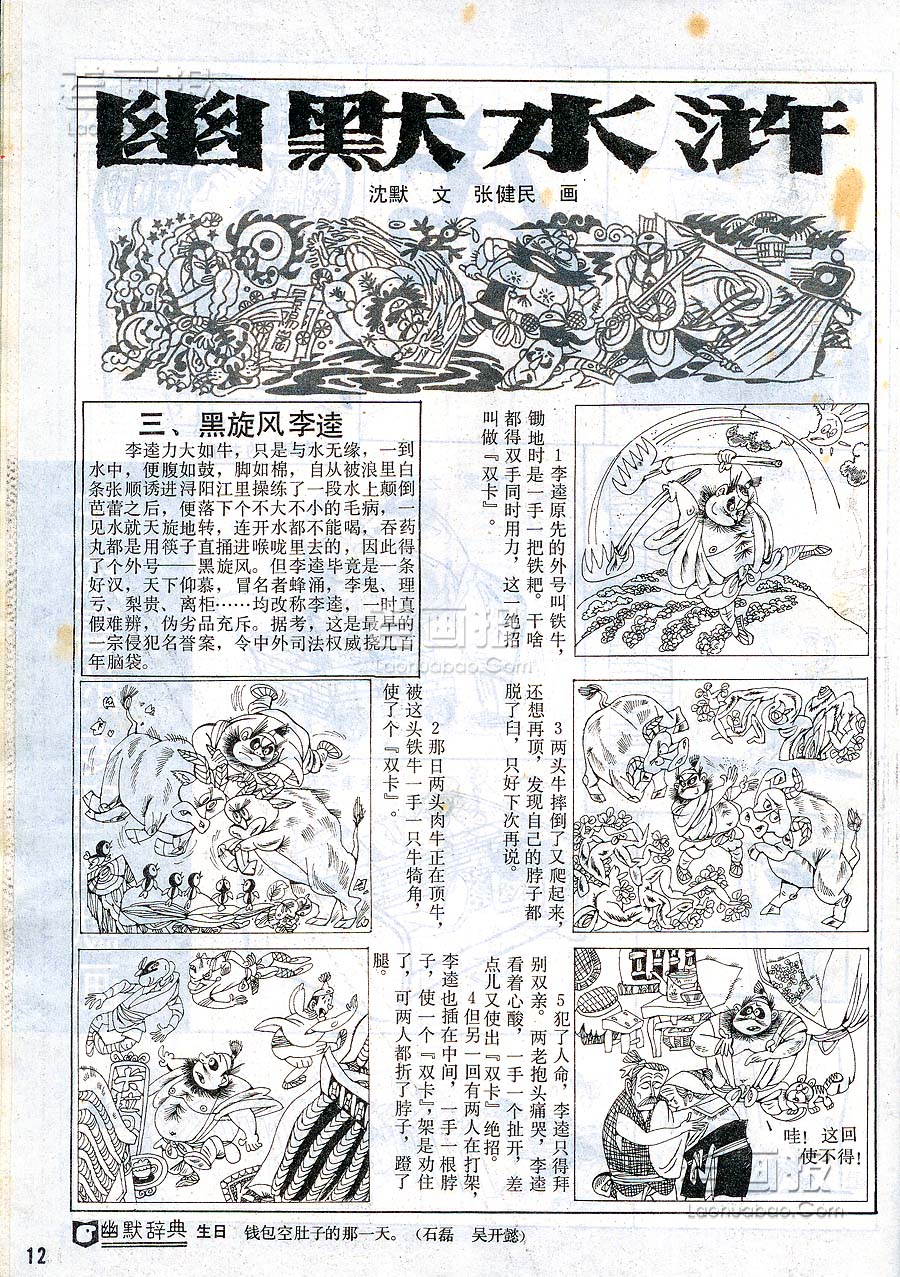 幽默水浒
沈默 文 张健民 画
三、黑旋风李逵
李逵力大如牛，只是与水无缘，一到
水中，便腹如鼓，脚如棉，自从被浪里白
条张顺诱进浔阳江里操练了一段水上颠倒
芭蕾之后，便落下个不大不小的毛病，一
见水就天旋地转，连开水都不能喝，吞药
丸都是用筷子直捅进喉咙里去的，因此得
了个外号——黑旋风。但李逵毕竟是一条
好汉，天下仰慕，冒名者蜂涌，李鬼、理
亏、梨贵、离柜……均改称李逵，一时真
假难辨，伪劣品充斥。据考，这是最早的
一宗侵犯名誉案，令中外司法权威挠几百
年脑袋。
1李逵原先的外号叫铁牛，
锄地时是一手一把铁耙。干啥
都得双手同时用力，这一绝招
叫做『双卡』。
2那日两头肉牛正在顶牛，
被这头铁牛一手一只牛犄角，
使了个『双卡』。
3两头牛摔倒了又爬起来，
还想再顶，发现自己的脖子都
脱了臼，只好下次再说。
4但另一回有两人在打架，
李逵也插在中间，一手一根脖
子，使一个『双卡』，架是劝住
了，可两人都折了脖子，蹬了
腿。
5犯了人命，李逵只得拜
别双亲。两老抱头痛哭，李逵
看着心酸，一手一个扯开，差
点儿又使出『双卡』绝招。
哇！这回
使不得！
幽默辞典 生日 钱包空肚子的那一天。（石磊 吴开懿）
12
老画报
Laohuabao.Com